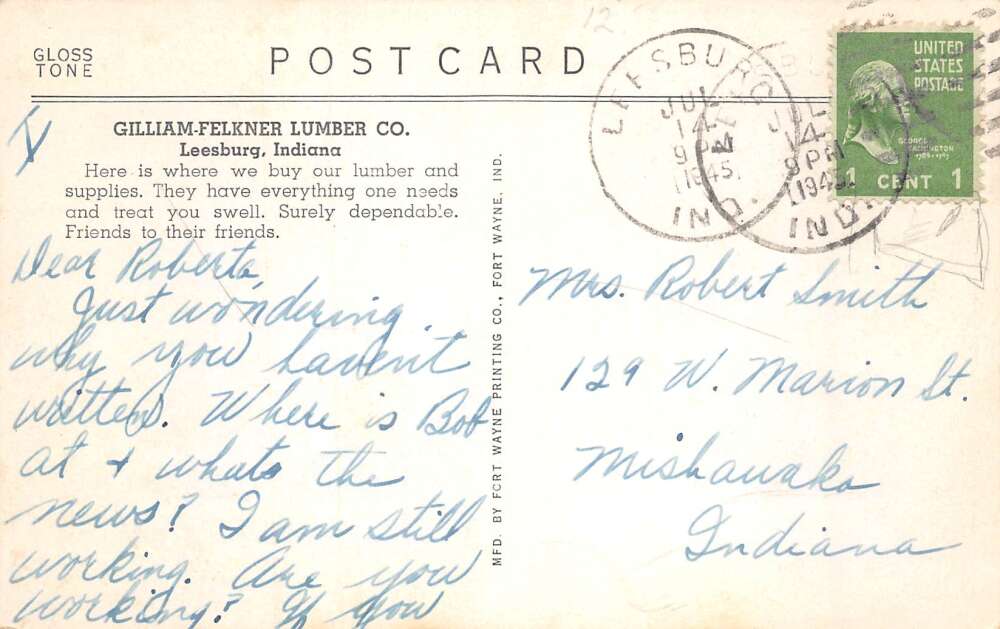 GLOSS
TONE
POST CARD
GILLIAM-FELKNER LUMBER CO.
Leesburg, Indiana
Here is where we buy our lumber and
supplies. They have everything one needs
and treat you swell. Surely dependable.
Friends to their friends.
Dear Roberta,
Just wondering
why you havent
written. Where is Bob
at + whats the
news? I am still
working. Are you
working? If you
MFD. BY FORT WAYNE PRINTING CO., FORT WAYNE, IND.
12
LEESBURG
JUL
14
9 PM
1945
IND.
JUL
14
9 PM
1945
IND.
UNITED
STATES
POSTAGE
GEORGE
WASHINGTON
1789-1797
1 CENT 1
Mrs. Robert Smith
129 W. Marion St.
Mishawaka
Indiana